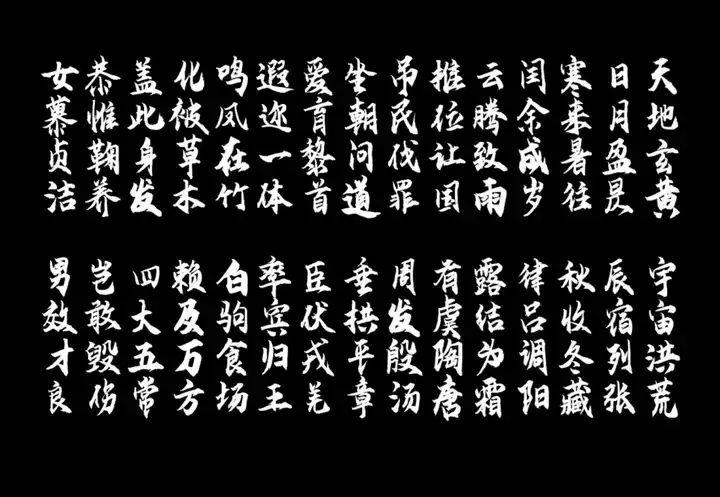 天地玄黄
宇宙洪荒
日月盈昃
辰宿列张
寒来暑往
秋收冬藏
闰余成岁
律吕调阳
云腾致雨
露结为霜
推位让国
有虞陶唐
吊民伐罪
周发殷汤
坐朝问道
垂拱平章
爱育黎首
臣伏戎羌
遐迩一体
率宾归王
鸣凤在竹
白驹食场
化被草木
赖及万方
盖此身发
四大五常
恭惟鞠养
岂敢毁伤
女慕贞洁
男效才良